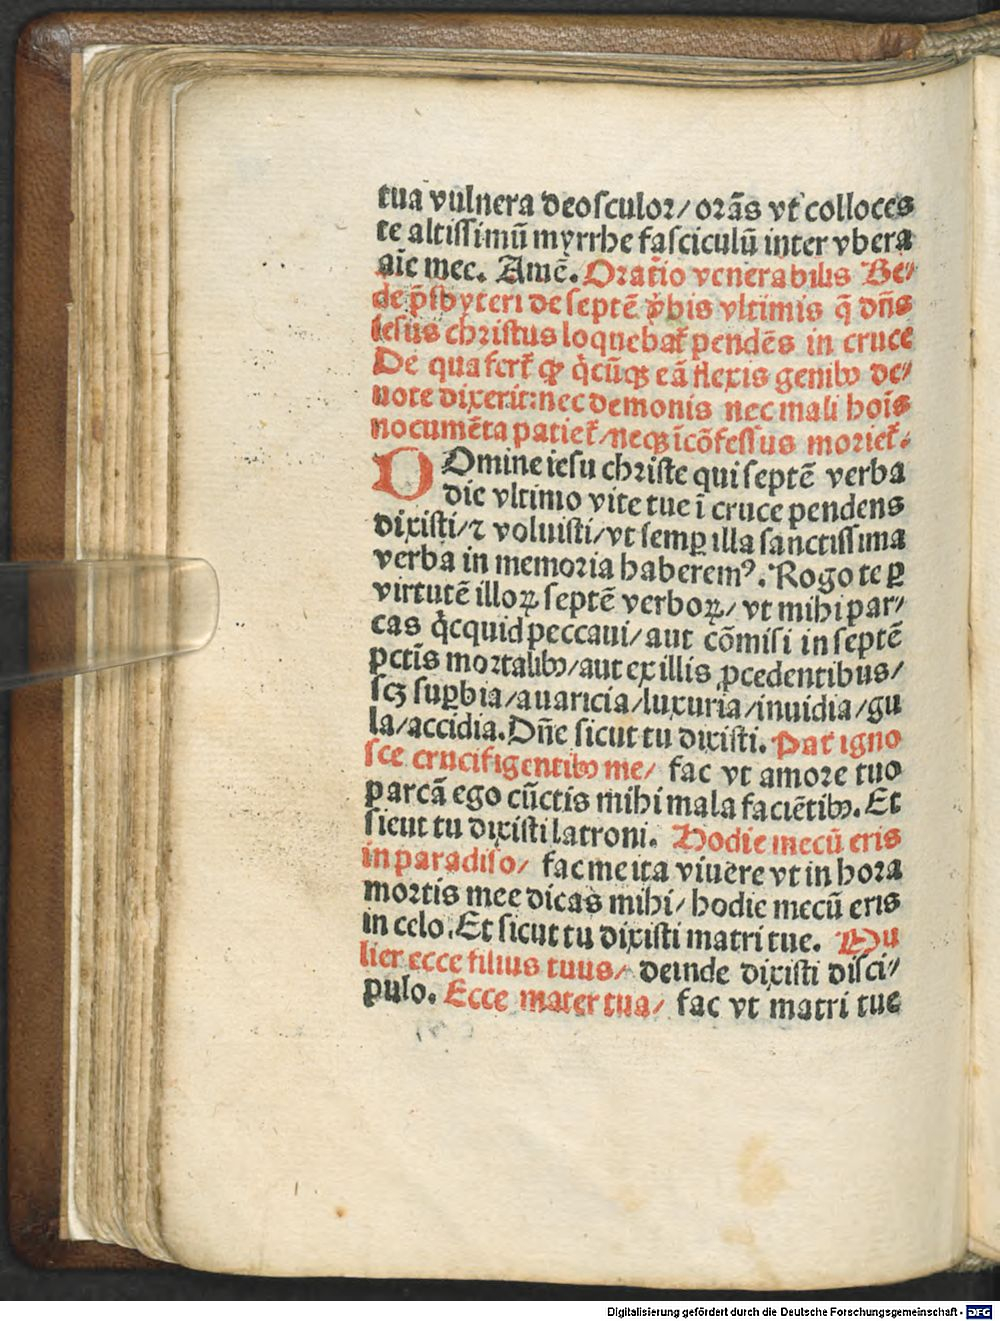 tua vulnera deosculor/ orãs vt colloces
te altissimũ myrrhe fasciculũ inter vbera
aĩe mee. Amẽ. Oratio venerabilis Be/
de p̃sbyteri de septẽ v̓bis vltimis q̃ dñs
iesus christus loquebat᷑ pendẽs in cruce
De qua fert᷑ ꝙ q̓cũqꝫ eã flexis genibꝰ de/
uote dixerit: nec demonis nec mali hoĩs
nocumẽta patiet᷑/ neqꝫ ĩcõfessus moriet᷑.
DOmine iesu christe qui septẽ verba
die vltimo vite tue ĩ cruce pendens
dixisti/ ⁊ voluisti/ vt semꝑ illa sanctissima
verba in memoria haberemꝰ. Rogo te ꝑ
virtutẽ illoꝝ septẽ verboꝝ/ vt mihi par/
cas q̓cquid peccaui/ aut cõmisi in septẽ
pctĩs mortalibꝰ/ aut ex illis ꝓcedentibus/
scꝫ suꝑbia/ auaricia/ luxuria/ inuidia/ gu
la/ accidia. Dñe sicut tu dixisti. Pat̓ igno
sce crucifigentibꝰ me/ fac vt amore tuo
parcã ego cũctis mihi mala faciẽtibꝰ. Et
sicut tu dixisti latroni. Hodie mecũ eris
in paradiso/ fac me ita viuere vt in hora
mortis mee dicas mihi/ hodie mecũ eris
in celo. Et sicut tu dixisti matri tue. Mu
lier ecce filius tuus/ deinde dixisti disci/
pulo. Ecce mater tua/ fac vt matri tue
Digitalisierung gefördert durch die Deutsche Forschungsgemeinschaft - DFG